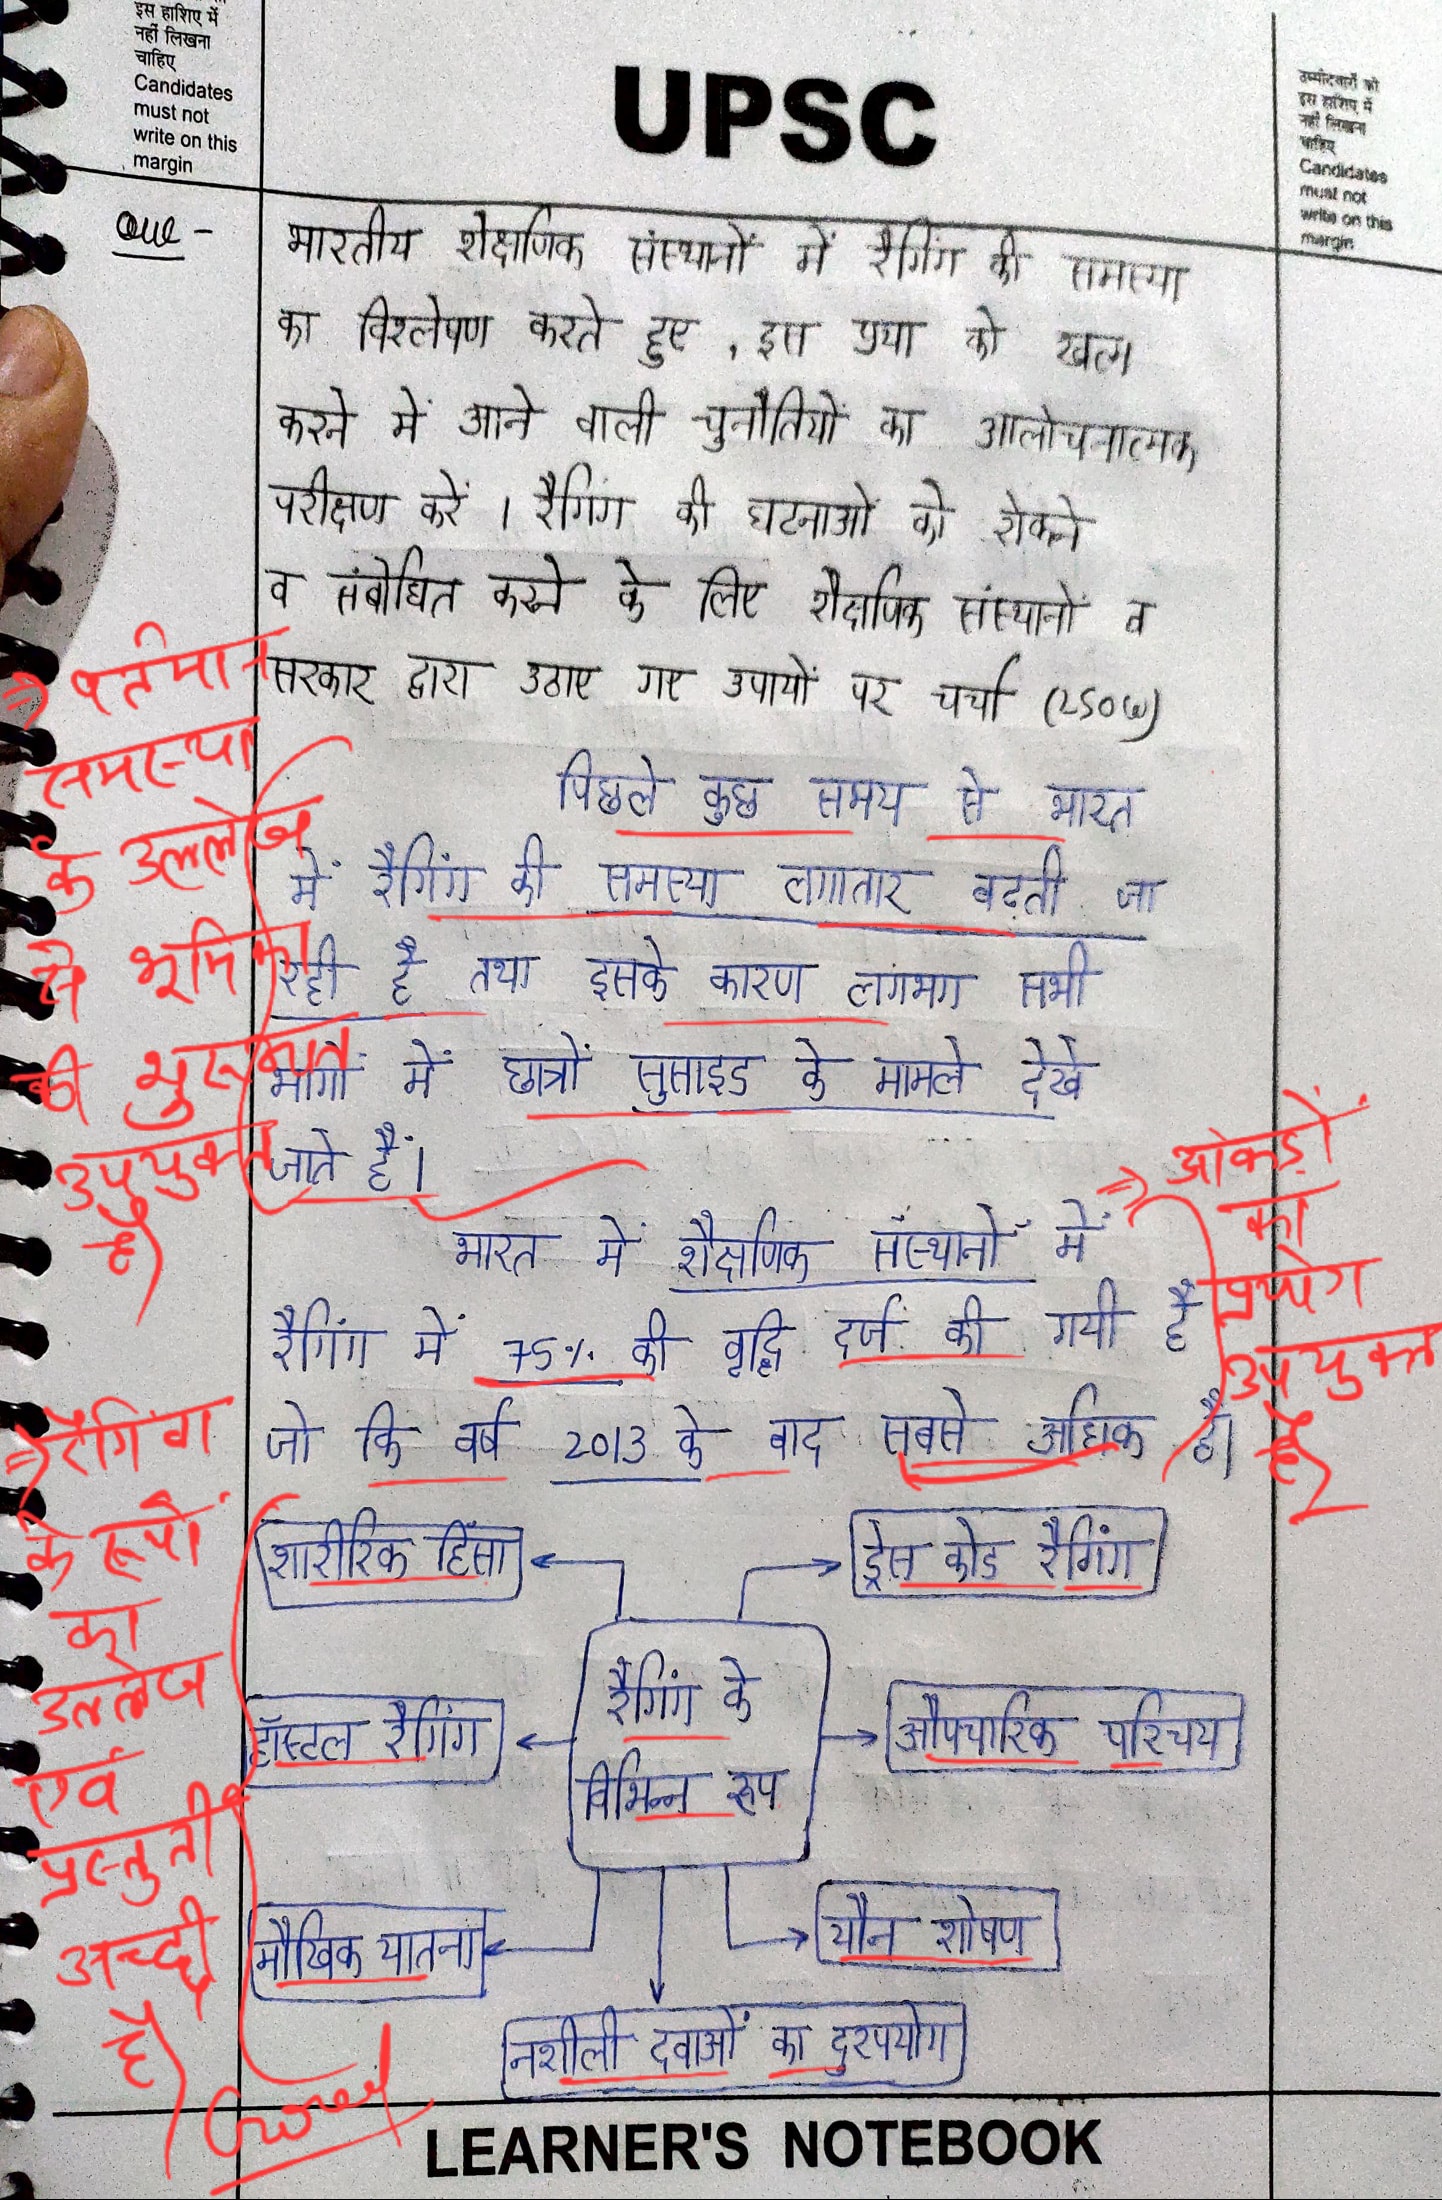 इस हाशिए में
नहीं लिखना
चाहिए
Candidates
must not
write on this
margin
UPSC
उम्मीदवारों को
इस हाशिए में
नहीं लिखना
चाहिए
Candidates
must not
write on this
margin
Que -
भारतीय शैक्षणिक संस्थानों में रैगिंग की समस्या
का विश्लेषण करते हुए, इस प्रथा को खत्म
करने में आने वाली चुनौतियों का आलोचनात्मक
परीक्षण करें । रैगिंग की घटनाओं को रोकने
व संबोधित करने के लिए शैक्षणिक संस्थानों व
सरकार द्वारा उठाए गए उपायों पर चर्चा (250W)
⇒ वर्तमान
समस्या
के उल्लेख
से भूमिका
की शुरुआत
उपयुक्त
है
पिछले कुछ समय से भारत
में रैगिंग की समस्या लगातार बढ़ती जा
रही है तथा इसके कारण लगभग सभी
भागों में छात्रों सुसाइड के मामले देखे
जाते हैं।
⇒ आंकड़ों
का
प्रयोग
उपयुक्त
है
भारत में शैक्षणिक संस्थानों में
रैगिंग में 75% की वृद्धि दर्ज की गयी है
जो कि वर्ष 2013 के बाद सबसे अधिक है।
⇒ रैगिंग
के रूपों
का
उल्लेख
एवं
प्रस्तुती
अच्छी
है
Good
शारीरिक हिंसा
ड्रेस कोड रैगिंग
रैगिंग के
विभिन्न रूप
हॉस्टल रैगिंग
औपचारिक परिचय
मौखिक यातना
यौन शोषण
नशीली दवाओं का दुरपयोग
LEARNER'S NOTEBOOK